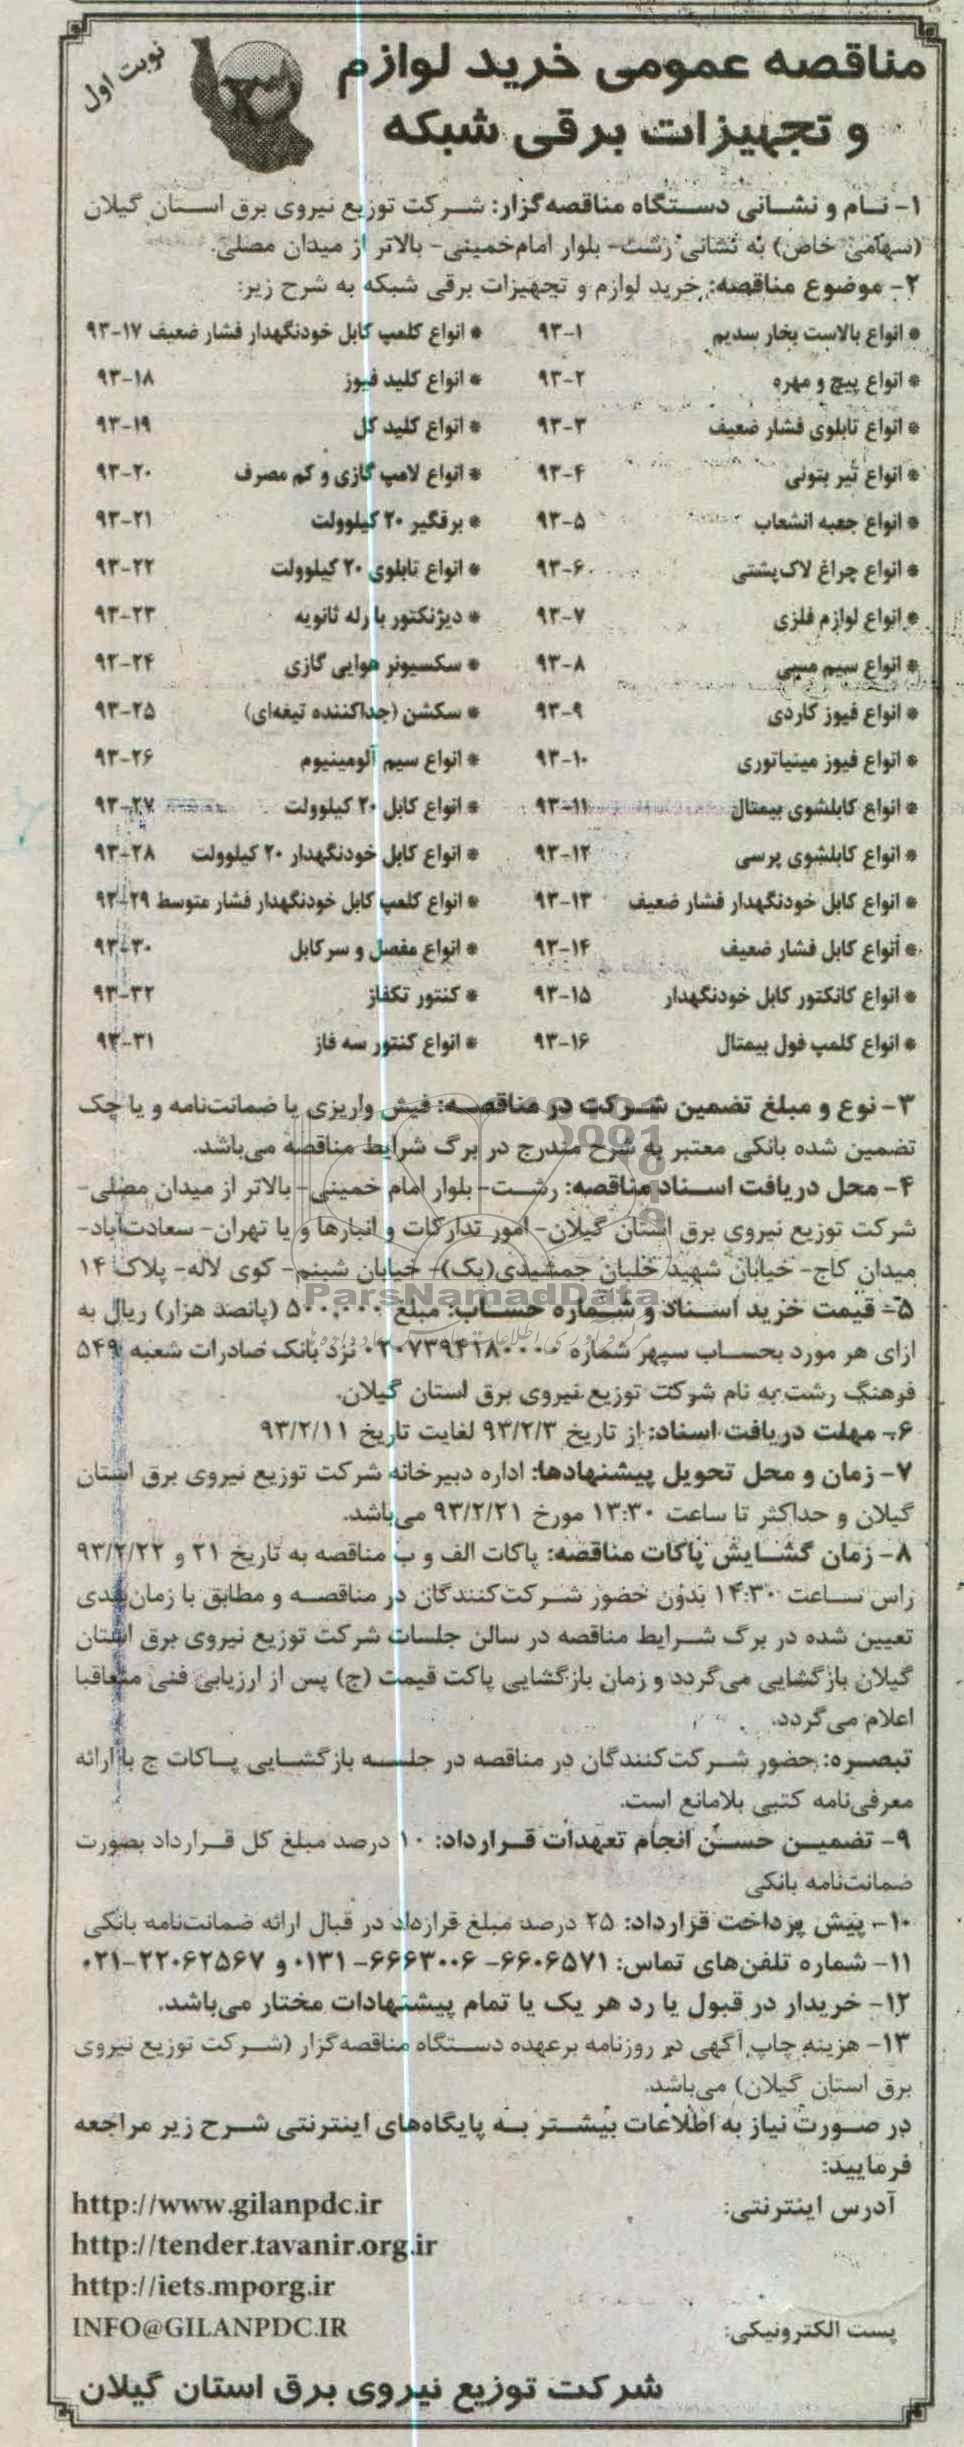 نوبت اول
مناقصه عمومی خرید لوازم
و تجهیزات برقی شبکه
۱- نام و نشانی دستگاه مناقصه‌گزار: شرکت توزیع نیروی برق استان گیلان
(سهامی خاص) به نشانی رشت- بلوار امام‌خمینی- بالاتر از میدان مصلی.
۲- موضوع مناقصه: خرید لوازم و تجهیزات برقی شبکه به شرح زیر:
* انواع بالاست بخار سدیم ۹۳-۱ * انواع کلمپ کابل خودنگهدار فشار ضعیف ۹۳-۱۷
* انواع پیچ و مهره ۹۳-۲ * انواع کلید فیوز ۹۳-۱۸
* انواع تابلوی فشار ضعیف ۹۳-۳ * انواع کلید کل ۹۳-۱۹
* انواع تیر بتونی ۹۳-۴ * انواع لامپ گازی و کم مصرف ۹۳-۲۰
* انواع جعبه انشعاب ۹۳-۵ * برقگیر ۲۰ کیلوولت ۹۳-۲۱
* انواع چراغ لاک‌پشتی ۹۳-۶ * انواع تابلوی ۲۰ کیلوولت ۹۳-۲۲
* انواع لوازم فلزی ۹۳-۷ * دیژنکتور با رله ثانویه ۹۳-۲۳
* انواع سیم مسی ۹۳-۸ * سکسیونر هوایی گازی ۹۳-۲۴
* انواع فیوز کاردی ۹۳-۹ * سکشن (جداکننده تیغه‌ای) ۹۳-۲۵
* انواع فیوز مینیاتوری ۹۳-۱۰ * انواع سیم آلومینیوم ۹۳-۲۶
* انواع کابلشوی بیمتال ۹۳-۱۱ * انواع کابل ۲۰ کیلوولت ۹۳-۲۷
* انواع کابلشوی پرسی ۹۳-۱۲ * انواع کابل خودنگهدار ۲۰ کیلوولت ۹۳-۲۸
* انواع کابل خودنگهدار فشار ضعیف ۹۳-۱۳ * انواع کلمپ کابل خودنگهدار فشار متوسط ۹۳-۲۹
* انواع کابل فشار ضعیف ۹۳-۱۴ * انواع مفصل و سرکابل ۹۳-۳۰
* انواع کانکتور کابل خودنگهدار ۹۳-۱۵ * کنتور تکفاز ۹۳-۳۲
* انواع کلمپ فول بیمتال ۹۳-۱۶ * انواع کنتور سه فاز ۹۳-۳۱
۳- نوع و مبلغ تضمین شرکت در مناقصه: فیش واریزی یا ضمانت‌نامه و یا چک
تضمین شده بانکی معتبر به شرح مندرج در برگ شرایط مناقصه می‌باشد.
۴- محل دریافت اسناد مناقصه: رشت- بلوار امام خمینی- بالاتر از میدان مصلی-
شرکت توزیع نیروی برق استان گیلان- امور تدارکات و انبارها و یا تهران- سعادت‌آباد-
میدان کاج- خیابان شهید خلبان جمشیدی(یک)- خیابان شبنم- کوی لاله- پلاک ۱۴
۵- قیمت خرید اسناد و شماره حساب: مبلغ ۵۰۰,۰۰۰ (پانصد هزار) ریال به
ازای هر مورد بحساب سپهر شماره نزد بانک صادرات شعبه ۵۴۹
فرهنگ رشت به نام شرکت توزیع نیروی برق استان گیلان.
۶- مهلت دریافت اسناد: از تاریخ ۹۳/۲/۳ لغایت تاریخ ۹۳/۲/۱۱
۷- زمان و محل تحویل پیشنهادها: اداره دبیرخانه شرکت توزیع نیروی برق استان
گیلان و حداکثر تا ساعت ۱۳:۳۰ مورخ ۹۳/۲/۲۱ می‌باشد.
۸- زمان گشایش پاکات مناقصه: پاکات الف و ب مناقصه به تاریخ ۲۱ و ۹۳/۲/۲۲
راس ساعت ۱۴:۳۰ بدون حضور شرکت‌کنندگان در مناقصه و مطابق با زمان‌بندی
تعیین شده در برگ شرایط مناقصه در سالن جلسات شرکت توزیع نیروی برق استان
گیلان بازگشایی می‌گردد و زمان بازگشایی پاکت قیمت (ج) پس از ارزیابی فنی متعاقبا
اعلام می‌گردد.
تبصره: حضور شرکت‌کنندگان در مناقصه در جلسه بازگشایی پاکات ج با ارائه
معرفی‌نامه کتبی بلامانع است.
۹- تضمین حسن انجام تعهدات قرارداد: ۱۰ درصد مبلغ کل قرارداد بصورت
ضمانت‌نامه بانکی
۱۰- پیش پرداخت قرارداد: ۲۵ درصد مبلغ قرارداد در قبال ارائه ضمانت‌نامه بانکی
۱۱- شماره تلفن‌های تماس: ۶۶۰۶۵۷۱- ۶۶۶۳۰۰۶- ۰۱۳۱ و ۲۲۰۶۲۵۶۷-۰۲۱
۱۲- خریدار در قبول یا رد هر یک یا تمام پیشنهادات مختار می‌باشد.
۱۳- هزینه چاپ آگهی در روزنامه برعهده دستگاه مناقصه‌گزار (شرکت توزیع نیروی
برق استان گیلان) می‌باشد.
در صورت نیاز به اطلاعات بیشتر به پایگاه‌های اینترنتی شرح زیر مراجعه
فرمایید:
آدرس اینترنتی: http://www.gilanpdc.ir
http://tender.tavanir.org.ir
http://iets.mporg.ir
پست الکترونیکی: INFO@GILANPDC.IR
شرکت توزیع نیروی برق استان گیلان
ParsNamadData